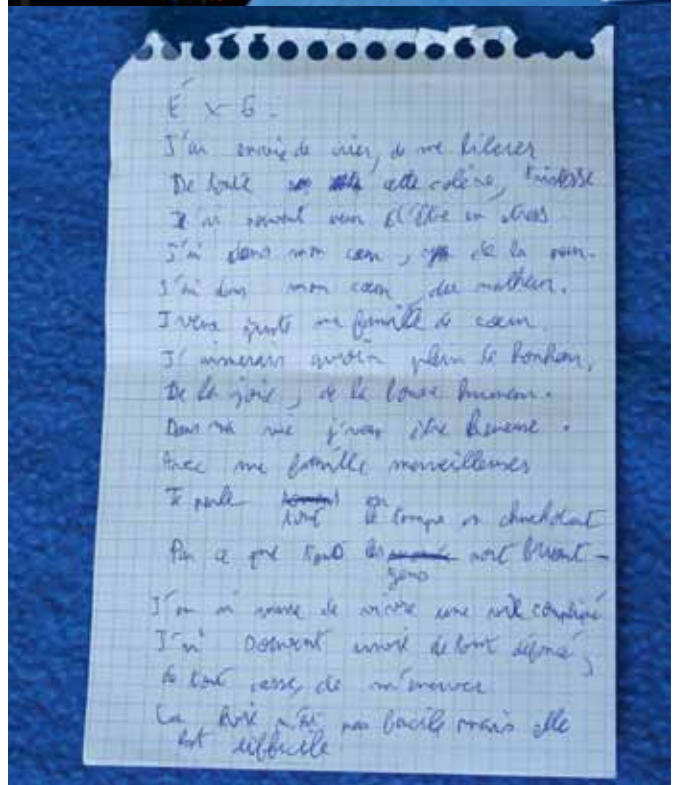 J'ai envie de crier, de me libérer
De toute cette colère, tristesse
J'ai souvent d'être en stress
J'ai dans mon cœur, de la
J'ai dans mon cœur, du malheur.
J veux juste ma famille de cœur.
J'aimerais avoir plein de bonheur,
De la joie, de la bonne humeur.
Dans ma vie j'veux être heureuse.
Avec ma famille merveilleuses
Je parle tout le temps en chuchotant
Par ce que tous les gens sont
J'en ai marre de vivre une vie compliqué
J'ai souvent envie de tout défoncé,
de tout casser, de m'énerver
La n'est pas facile mais elle
est difficile